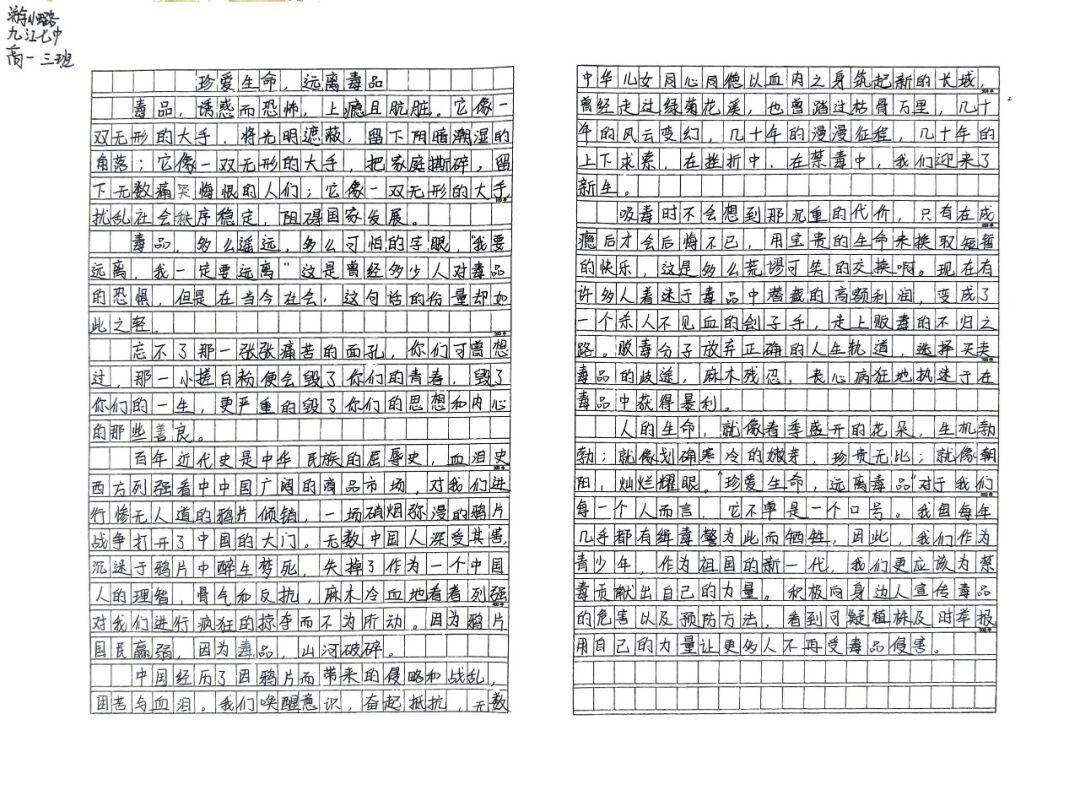 九江七中
高一三班
珍爱生命，远离毒品
毒品，诱惑而恐怖，上瘾且肮脏。它像一
双无形的大手，将光明遮蔽，留下阴暗潮湿的
角落；它像一双无形的大手，把家庭撕碎，留
下无数痛哭悔恨的人们；它像一双无形的大手，
扰乱社会秩序稳定，阻碍国家发展。
毒品，多么遥远，多么可怕的字眼，“我要
远离，我一定要远离”这是曾经多少人对毒品
的恐惧，但是在当今社会，这句话的份量却如
此之轻。
忘不了那一张张痛苦的面孔，你们可曾想
过，那一小搓白粉便会毁了你们的青春，毁了
你们的一生，更严重的毁了你们的思想和内心
的那些善良。
百年近代史是中华民族的屈辱史，血泪史
西方列强看中中国广阔的商品市场，对我们进
行惨无人道的鸦片倾销，一场硝烟弥漫的鸦片
战争打开了中国的大门。无数中国人深受其害，
沉迷于鸦片中醉生梦死，失掉了作为一个中国
人的理智，骨气和反抗，麻木冷血地看着列强
对我们进行疯狂的掠夺而不为所动。因为鸦片
国民羸弱，因为毒品，山河破碎。
中国经历了因鸦片而带来的侵略和战乱，
困苦与血泪。我们唤醒意识，奋起抵抗，无数
中华儿女同心同德以血肉之身筑起新的长城，
曾经走过绿菊花溪，也曾踏过枯骨万里，几十
年的风云变幻，几十年的漫漫征程，几十年的
上下求索，在挫折中、在禁毒中，我们迎来了
新生。
吸毒时不会想到那沉重的代价，只有在成
瘾后才会后悔不已，用宝贵的生命来换取短暂
的快乐，这是多么荒谬可笑的交换啊。现在有
许多人着迷于毒品中潜藏的高额利润，变成了
一个杀人不见血的刽子手，走上贩毒的不归之
路。贩毒分子放弃正确的人生轨道，选择买卖
毒品的歧途，麻木残忍，丧心病狂地执迷于在
毒品中获得暴利。
人的生命，就像春季盛开的花朵，生机勃
勃；就像划确寒冷的嫩芽，珍贵无比；就像朝
阳，灿烂耀眼。“珍爱生命，远离毒品”对于我们
每一个人而言，它不单是一个口号。我国每年
几乎都有缉毒警为此而牺牲，因此，我们作为
青少年，作为祖国的新一代，我们更应该为禁
毒贡献出自己的力量。积极向身边人宣传毒品
的危害以及预防方法，看到可疑植株及时举报
用自己的力量让更多人不再受毒品侵害。